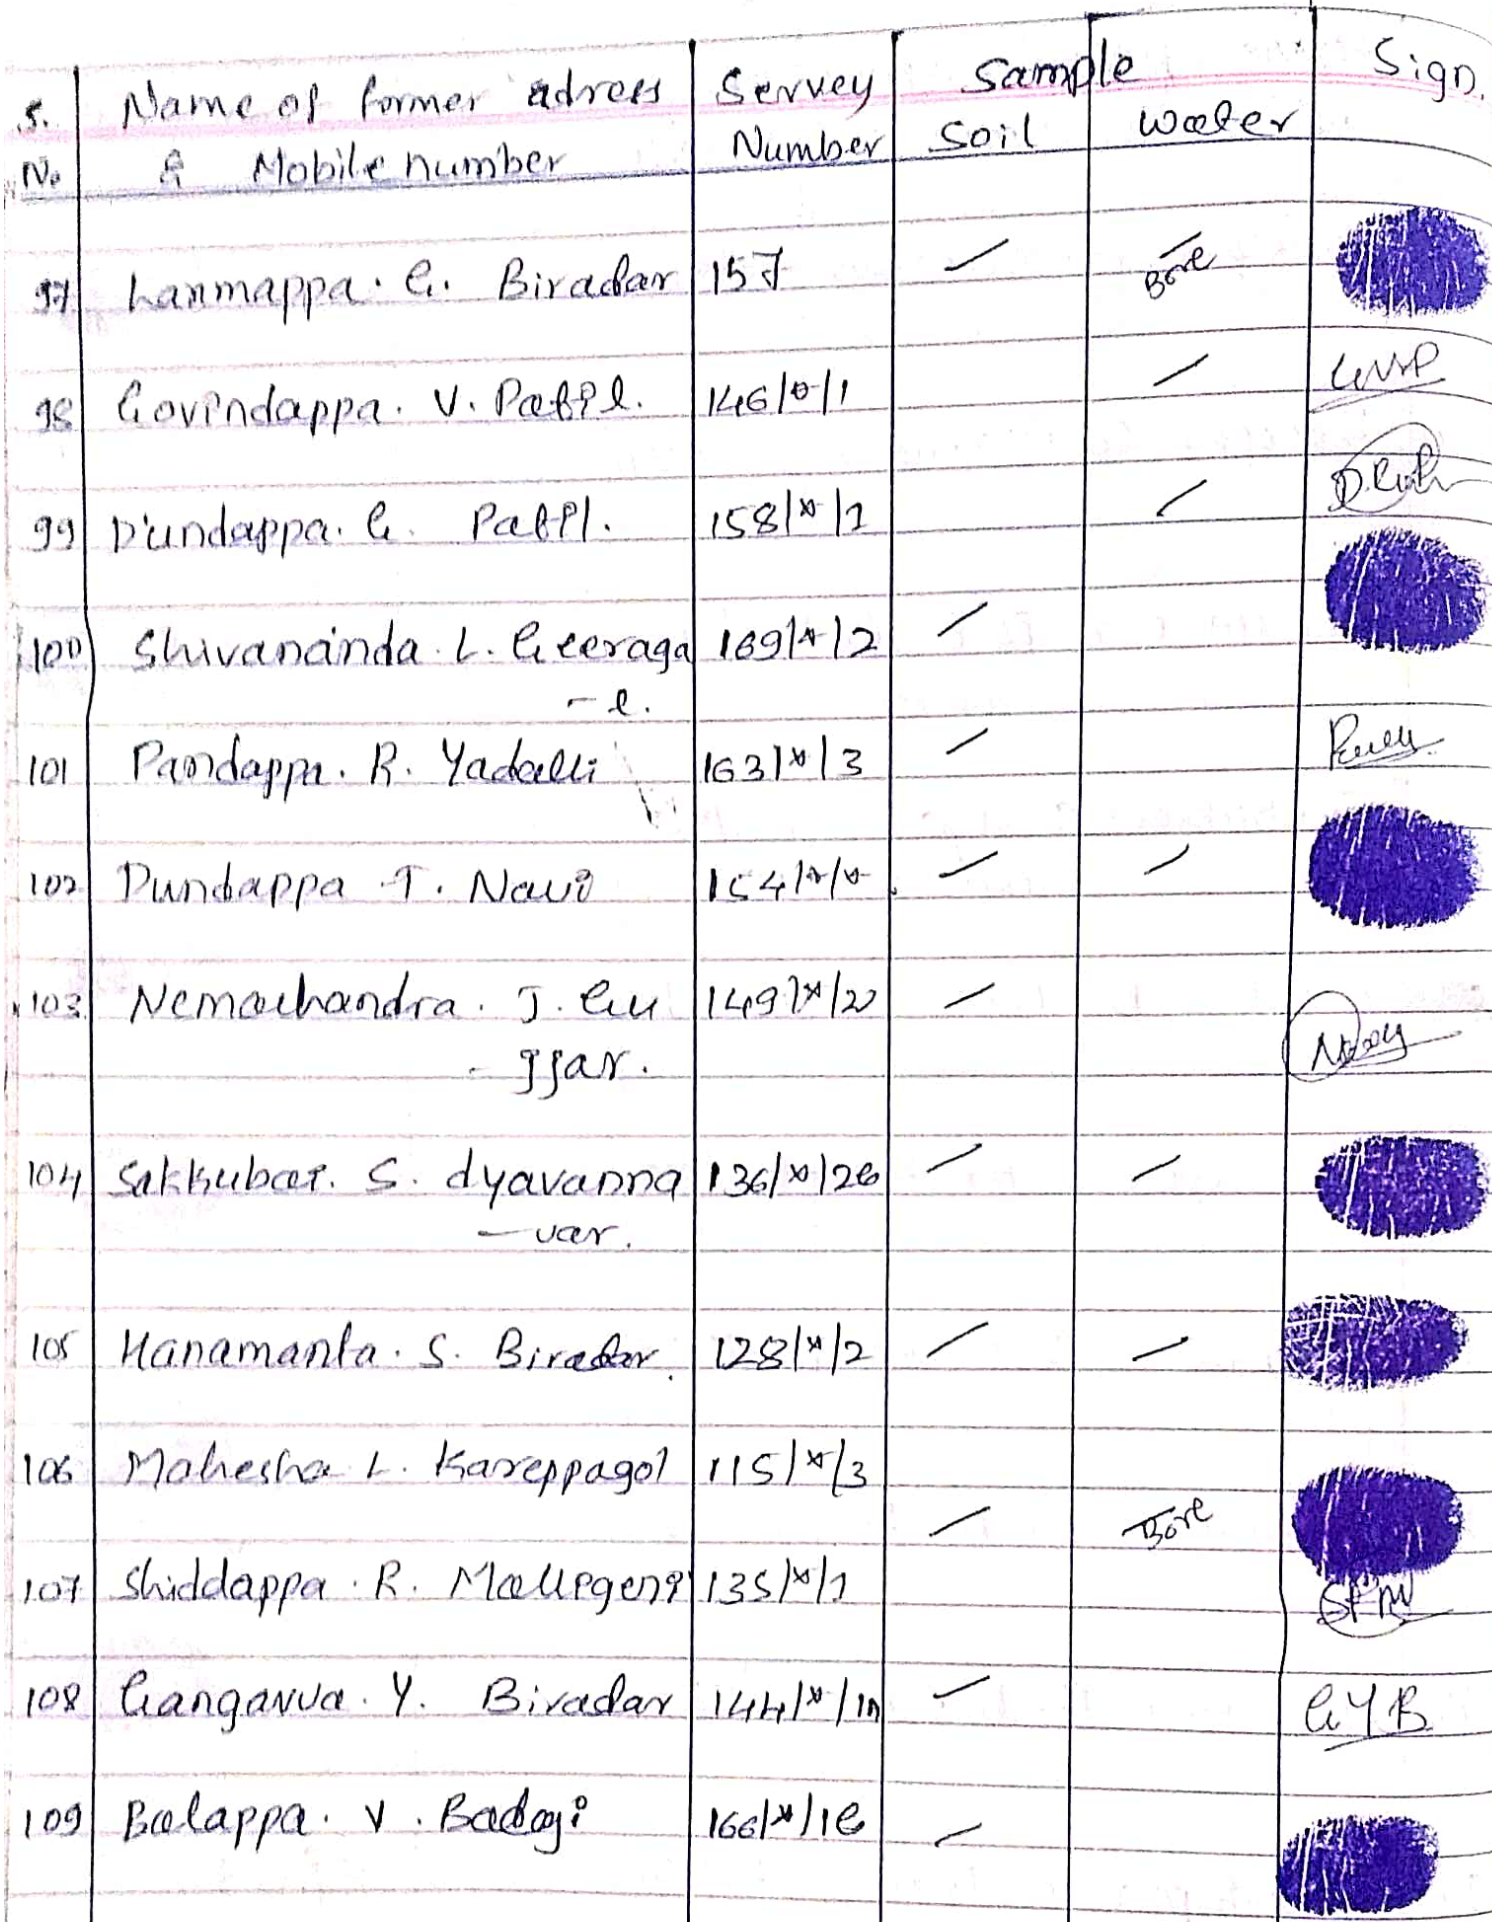 S. No Name of former adress & Mobile number Servey Number Sample Soil Water Sign.
97 Laxmappa. G. Biradar 157 Bore
98 Govindappa. V. Patil. 146/*/1 GVP
99 Dundappa. G. Patil. 158/*/1
100 Shivananda. L. Geeraga 169/*/2
- e.
101 Pandappa. R. Yadalli 163/*/3
102 Dundappa T. Navi 154/*/*
103 Nemachandra. J. Gu 149/*/2
- jjar.
104 Sakkubai. S. dyavanna 136/*/26
- var.
105 Hanamanta. S. Biradar 128/*/2
106 Mahesha L. Kareppagol 115/*/3 Bore
107 Shiddappa. R. Mallegeni 135/*/1 SRM
108 Gangavva. Y. Biradar 144/*/1n GYB
109 Balappa. V. Badagi 166/*/1e